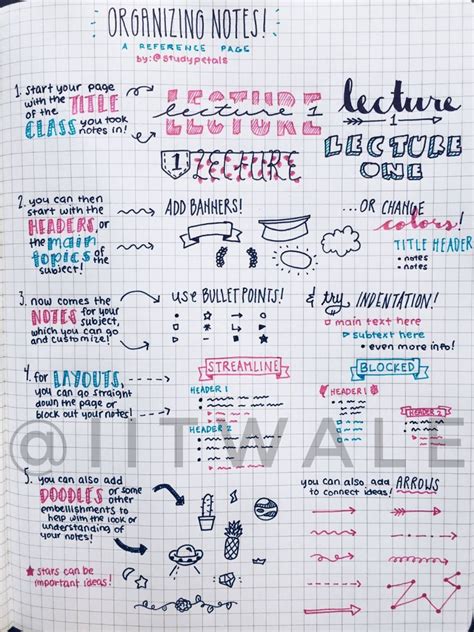 ORGANIZING NOTES!
A REFERENCE PAGE
by: @studypetals
1. start your page
with the TITLE
of the
CLASS you took
notes in!
LECTURE
lecture 1
LECTURE
1 LECTURE
lecture
1
LECTURE
ONE
2. you can then
start with the
HEADERS, or
the main
topics of the
subject!
ADD BANNERS!
...OR CHANGE
colors!
TITLE HEADER
• notes
• notes
3. now comes the
NOTES for your
subject,
which you can go
and customize!
USE BULLET POINTS!
& try INDENTATION!
main text here
subtext here
• even more info!
4. for LAYOUTS,
you can go straight
down the page or
block out your notes!
STREAMLINE
HEADER 1
HEADER 2
BLOCKED
HEADER 1
HEADER 2
@IITWALE
5. you can also add
DOODLES or some
other
embellishments to
help with the look or
understanding of
your notes!
★ stars can be
important ideas!
you can also add ARROWS
to connect ideas!